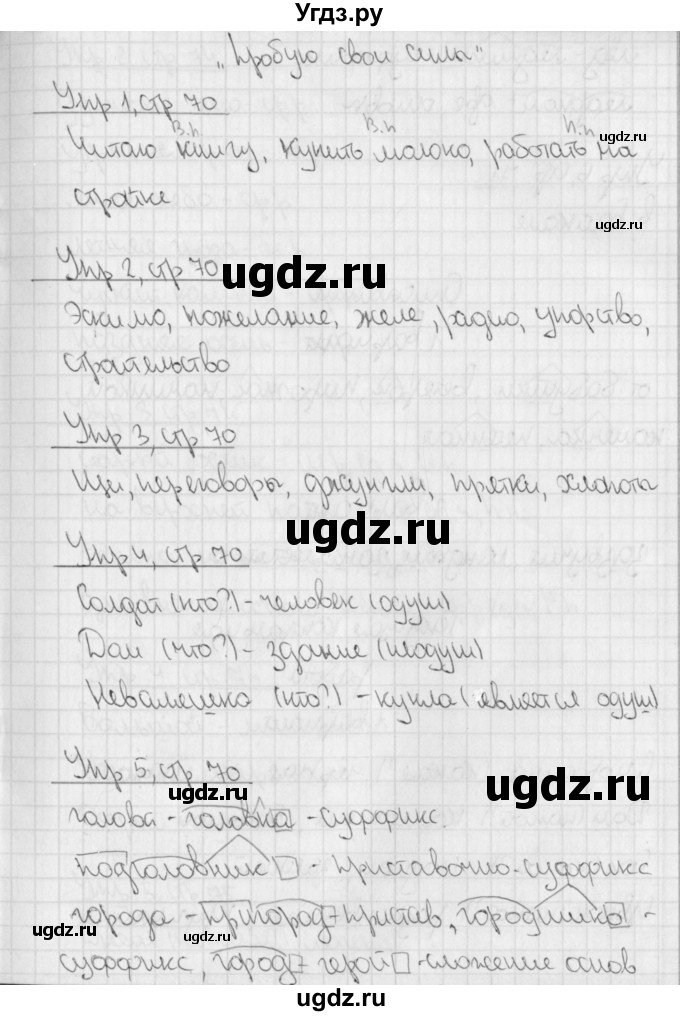 Угдз.ру
„Пробую свои силы"
Упр 1, стр 70
В.п В.п П.п
Читаю книгу, купить молоко, работать на
стройке
Упр 2, стр 70
Эскимо, пожелание, желе, радио, упорство,
строительство
Упр 3, стр 70
Щи, переговоры, джунгли, прятки, хлопоты
Упр 4, стр 70
Солдат (кто?) - человек (одуш)
Дом (что?) - здание (неодуш)
Неваляшка (кто?) - кукла (является одуш)
Упр 5, стр 70
голова - головка - суффикс.
подголовник - приставочно-суффикс
города - пригород - пристав, городишко -
суффикс, город - герой - сложение основ
ugdz.ru
ugdz.ru
ugdz.ru
ugdz.ru
ugdz.ru
ugdz.ru
ugdz.ru
ugdz.ru
ugdz.ru
ugdz.ru